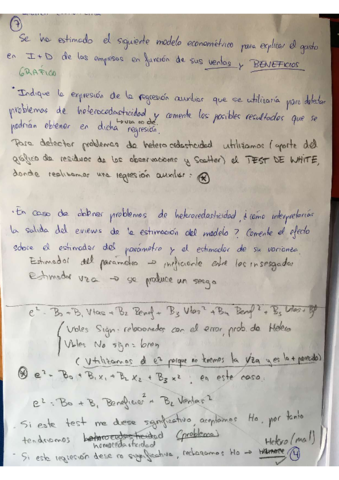 ⑦
Se ha estimado el siguiente modelo econométrico para explicar el gasto
en I+D de las empresas en función de sus ventas y BENEFICIOS
GRAFICO
· Indique la expresión de la regresión auxiliar que se utilizaría para detectar
problemas de heterocedasticidad y comente los posibles resultados que se
podrían obtener en dicha regresión.
Para detectar problemas de heterocedasticidad utilizamos (aparte del
gráfico de residuos de las observaciones y Scatter) el TEST DE WHITE,
donde realizamos una regresión auxiliar: ⊗
· En caso de haber problemas de heterocedasticidad, ¿cómo interpretaría
la salida del eviews de la estimación del modelo? Comente el efecto
sobre el estimador del parámetro y el estimador de su varianza
Estimador del parámetro → ineficiente entre los insesgados
Estimador vza → se produce un sesgo
e² = B0 + B1 Vtas + B2 Benef + B3 Vtas² + B4 Benef² + B5 Vtas · Bf
Vbles Sign. relacionada con el error, prob de Hetero
Vbles No sign = bien
(Utilizamos el e² porque no tenemos la vza y es la + parecida)
⊗ e² = B0 + B1 X1 + B2 X2 + B3 X², en este caso.
e² = B0 + B1 Beneficios² + B2 Ventas²
· Si este test me diese significativo aceptamos Ho, por tanto
tendríamos heterocedasticidad (problema)
homocedasticidad
Hetero (mal)
· Si esta regresión diese no significativa, rechazamos Ho →
④